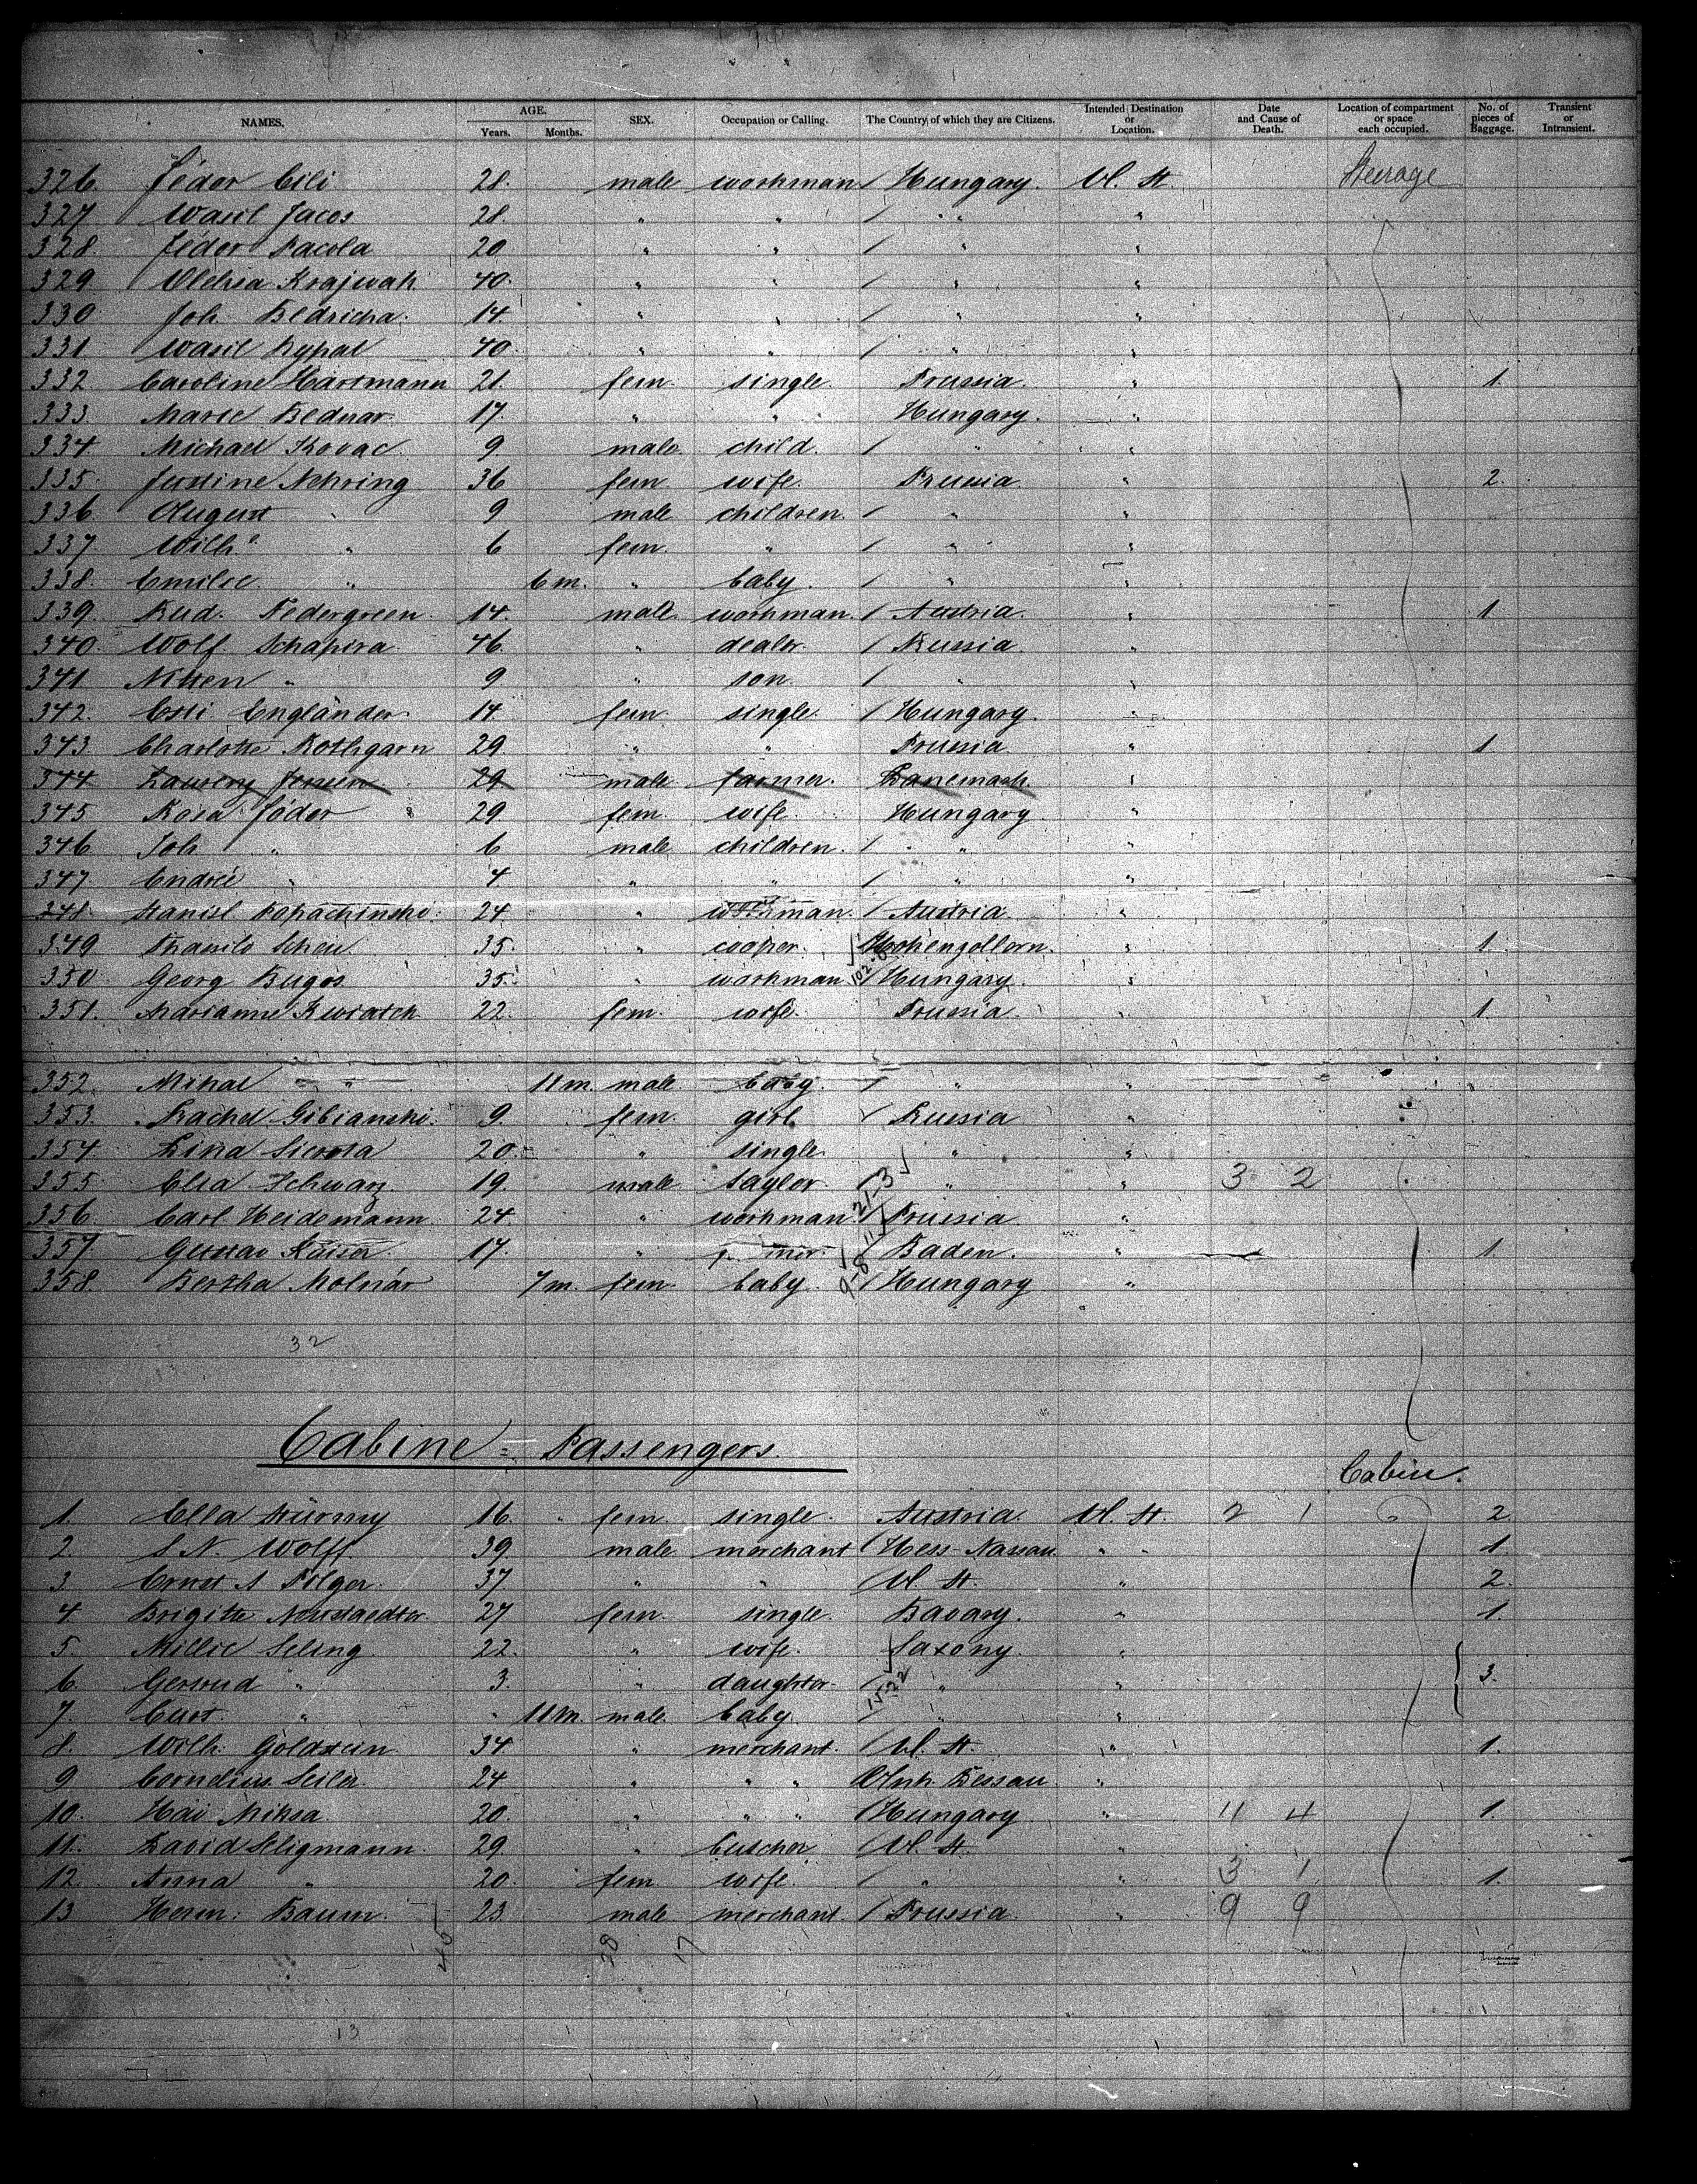 NAMES. AGE. Years. Months. SEX. Occupation or Calling. The Country of which they are Citizens. Intended Destination or Location. Date and Cause of Death. Location of compartment or space each occupied. No. of pieces of Baggage. Transient or Intransient.
326. Fédor Cili 28. male workman / Hungary. U. St. Steerage
327 Wasil Jacos 28. " " / " " "
328. Fédor Pacola 20 " " / " "
329 Olehsa Krajwah 40. " " / " "
330 Joh. Bedricha. 14. " " / " "
331. Wasil Kypal 40. " " / " "
332. Caroline Hartmann 21. fem. single. Prussia. " 1.
333. Marie Bednar. 17. " " Hungary. "
334. Michael Kovac. 9. male. child. / " "
335. Justine Nehring 36 fem wife. Prussia. " 2.
336. August " 9 male children. / " "
337. Wilh.e " 6 fem. " / " "
338. Emilie " 6 m. " baby. / " "
339. Rud. Federgreen. 14. male workman. / Austria. " 1.
340. Wolf Schapira. 46. " dealer. / Russia. "
341 Nissen " 9 " son. / " "
342. Esti Engländer. 14. fem single. / Hungary. "
343. Charlotte Rothgarn 29. " " Prussia. " 1
344 Laurenz Jensen 29 male farmer. Danemark. "
345 Rosa Fédor 29. fem. wife. Hungary "
346. Joh. " 6 male children. / " "
347. Endré " 4 " " / " "
348. Stanisl Kopachinski. 24 " workman. / Austria. "
349 Thassilo Scheu. 35. " cooper. / Hohenzollern. " 1.
350. Georg Bugos 35. " workman / Hungary. "
351. Marianne Kwiatch. 22. fem. wife. Prussia. " 1.
352. Mihal " 11 m. male baby. / " "
353. Rachel Gibianski. 9. fem. girl / Russia "
354. Lina Sierota 20. " single. " "
355. Elsa Schwarz. 19. male. taylor. / " " 3 2
356 Carl Heidemann. 24. " workman. / Prussia "
357. Gustav Kaiser. 17. " / Baden. " 1
358. Bertha Molnár 7 m. fem. baby. / Hungary "
32
Cabine = Passengers.
Cabin.
1. Ella Stürmy 16. fem single. Austria. U. St. 2 1 2.
2. S. N. Wolff. 39. male. merchant / Hess-Nassau " 1.
3 Ernst A Filger. 37. " " / U. St. " 2.
4 Brigitte Neustaedter 27 fem. single. Bavary. " 1.
5. Millie Seling 22. " wife. Saxony. "
6. Gertrud " 3. " daughter. / " " 3.
7. Curt. " " 11 m. male. baby. / " "
8. Wilh. Goldstein 34. " merchant. / U. St. " 1.
9 Cornelius Seiler. 24 " " " / Anh. Dessau. "
10. Haii Miksa. 20. " " " / Hungary " 11 4 1.
11. David Seligmann. 29. " butcher / U. St. "
12. Anna " 20. fem wife. / " " 3 1 1.
13 Herm: Baum. 23 male merchant. / Prussia. " 9 9
13